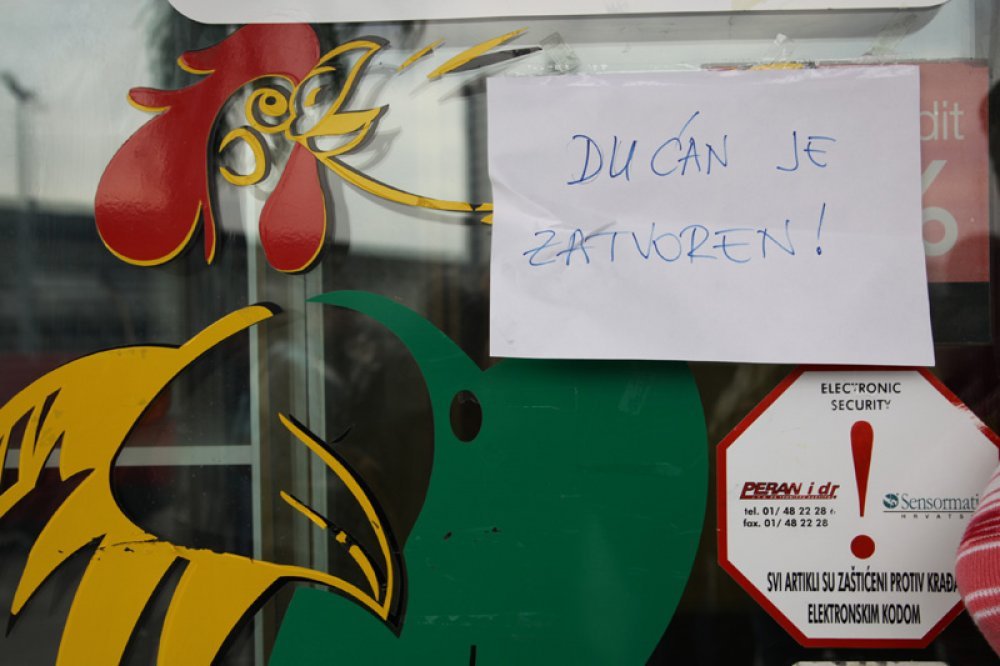 DUĆAN JE
ZATVOREN!
dit
%
ELECTRONIC
SECURITY
!
PERAN i dr
Sensormati
HRVATS
tel. 01/ 48 22 28 6
fax. 01/ 48 22 28
SVI ARTIKLI SU ZAŠTIĆENI PROTIV KRAĐA
ELEKTRONSKIM KODOM